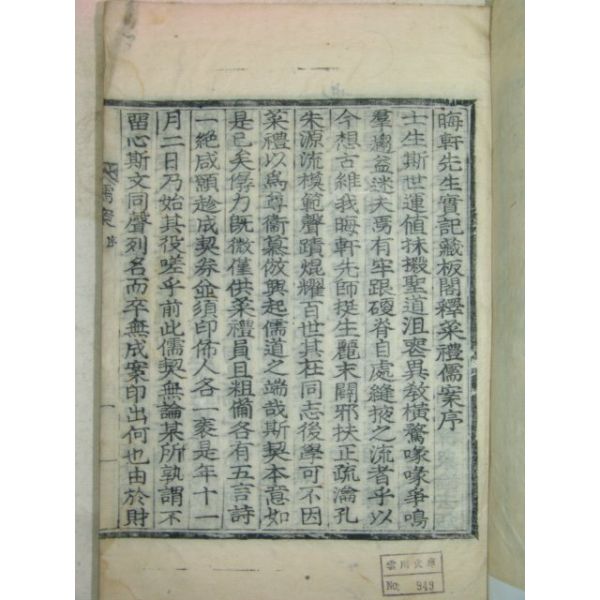 晦軒先生實記藏板閣釋菜禮儒案序
士生斯世運値抹摋聖道沮喪異敎橫騖喙喙爭鳴
羣𤺺益迷夫焉有牢跟硬脊自處縫掖之流者乎以
今想古維我晦軒先師挺生麗末闢邪扶正疏瀹孔
朱源流模範聲蹟焜耀百世其在同志後學可不因
菜禮以爲尊衞慕倣興起儒道之端哉斯契本意如
是已矣僝力旣微僅供菜禮員且粗備各有五言詩
一絶咸願趁成契券並須印佈人各一袠是年十一
月二日乃始其役嗟乎前此儒契無論某所孰謂不
留心斯文同聲列名而卒無成案印出何也由於財
儒案 序
一
雲川文庫
No. 949